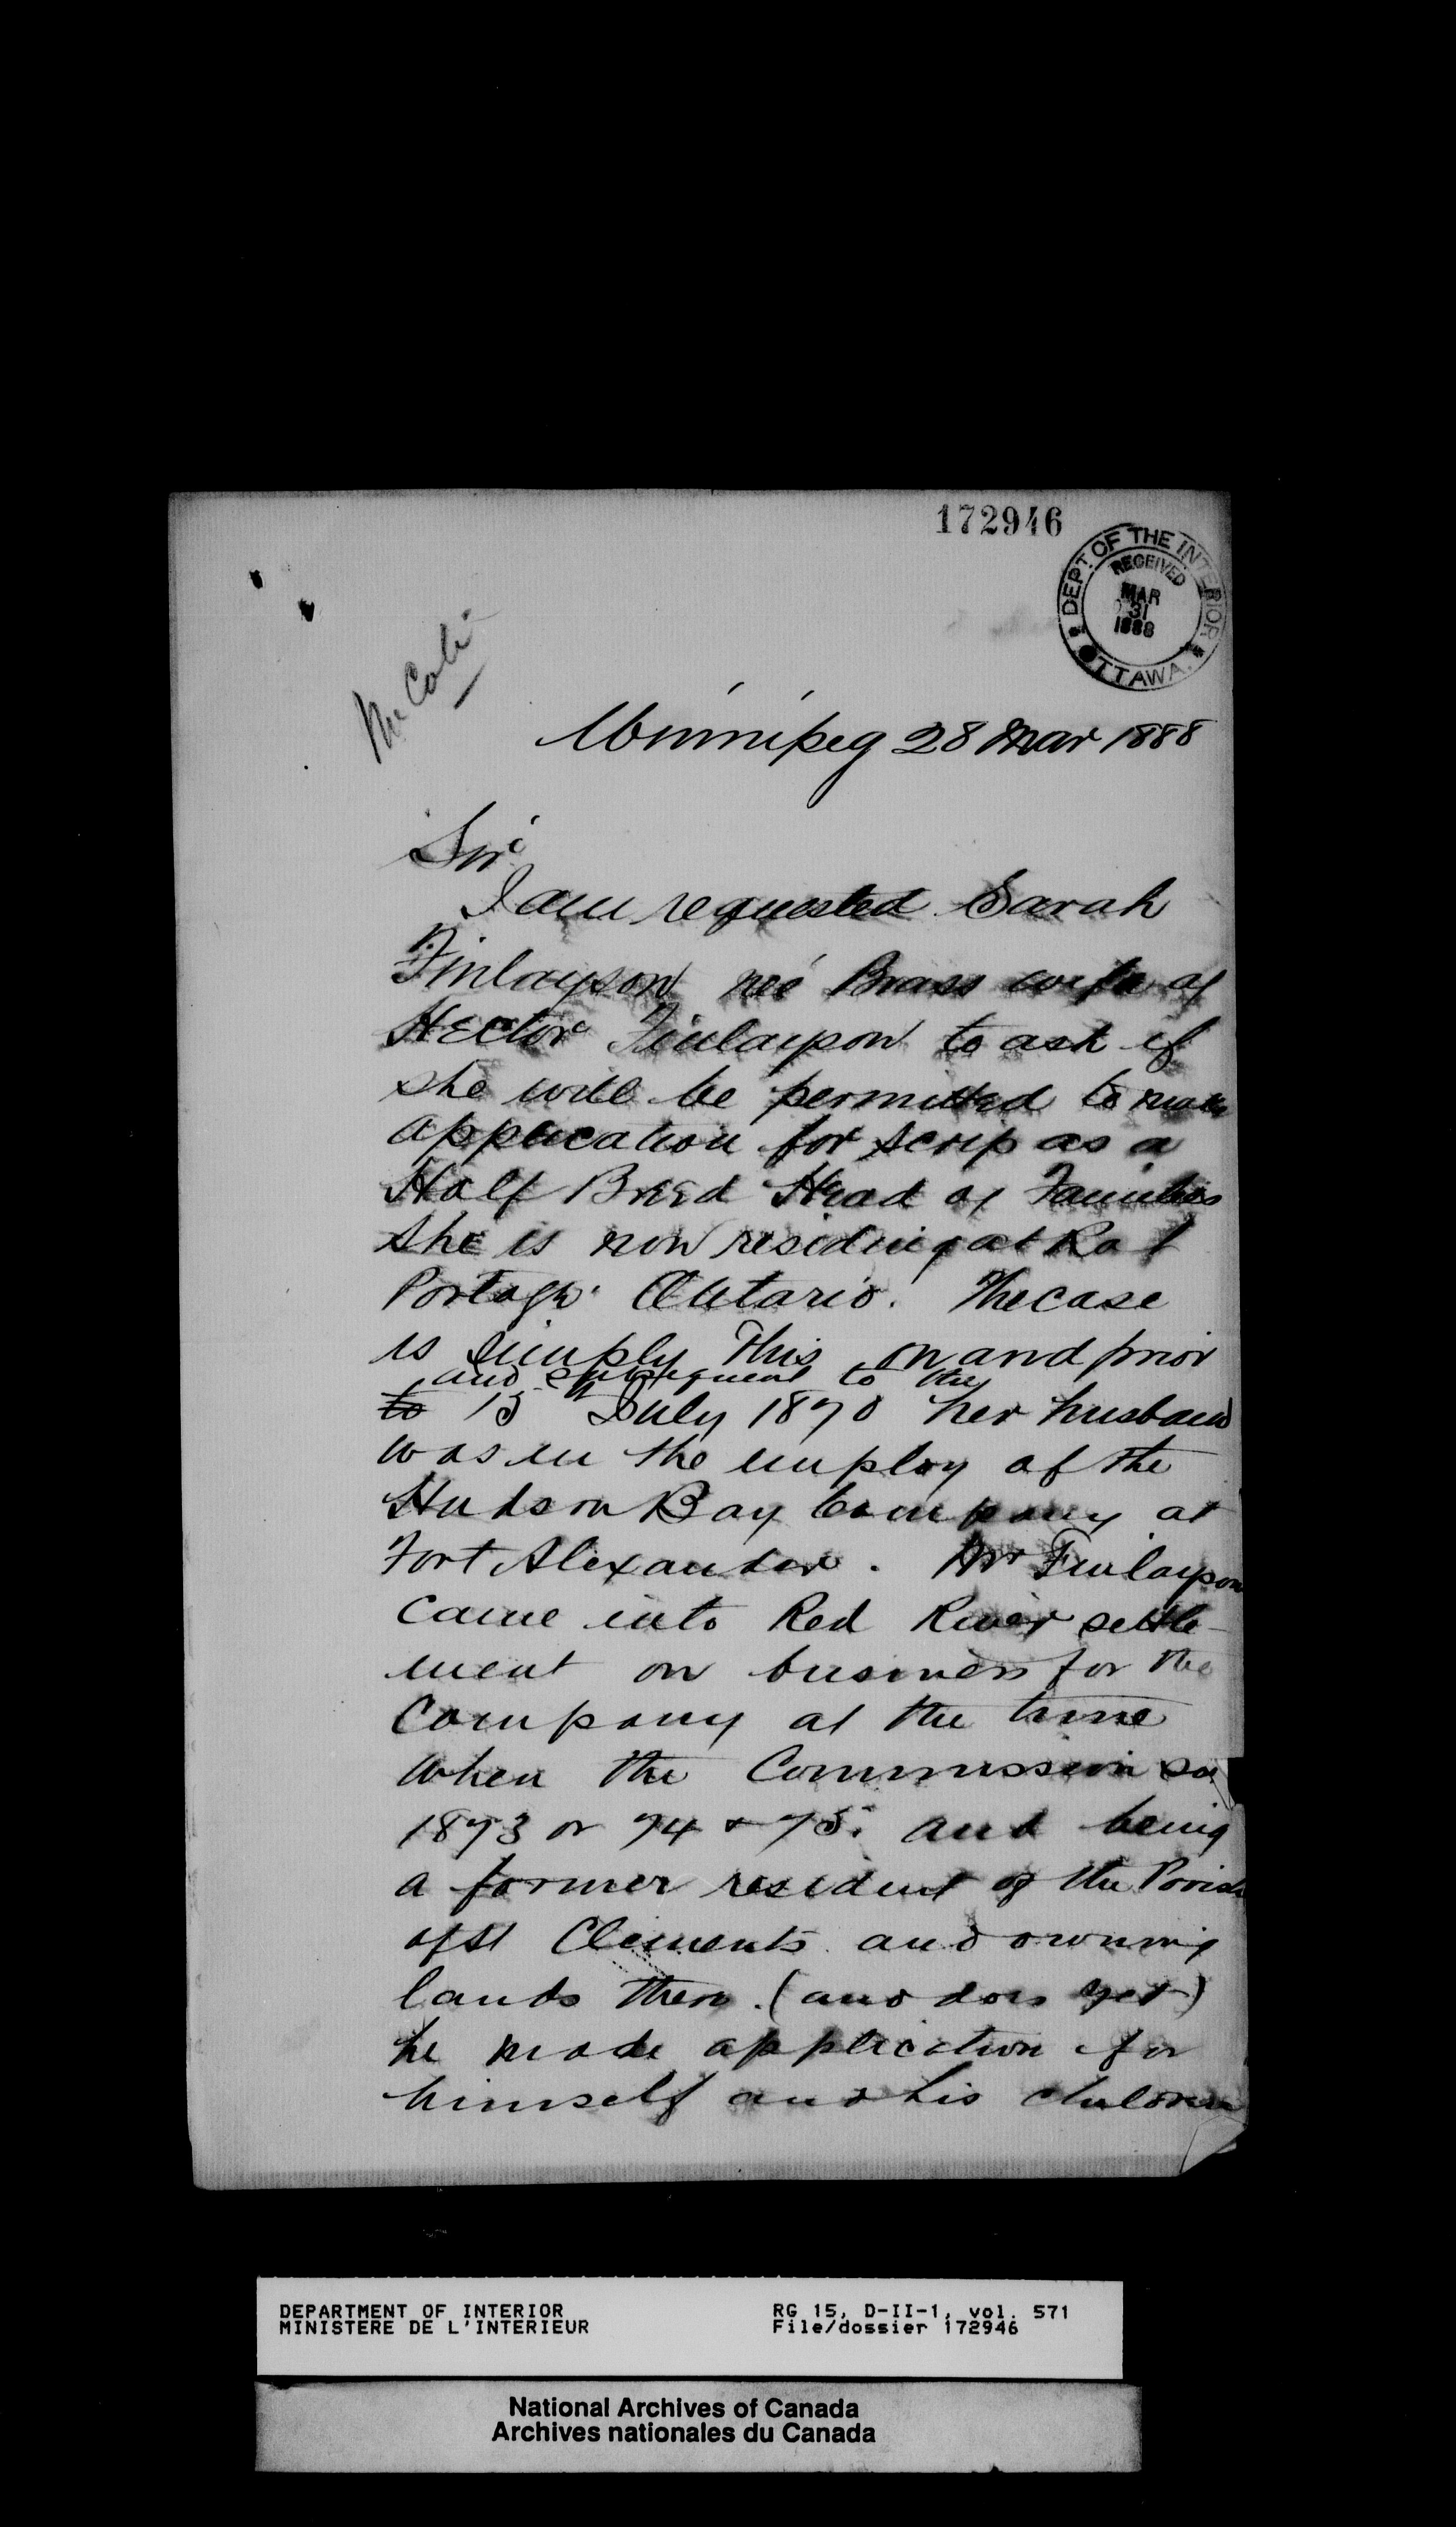 172946
DEPT. OF THE INTERIOR
RECEIVED
MAR
31
1888
OTTAWA.
Winnipeg 28 Mar 1888
Sir
I am requested Sarah
Finlayson neé Brass wife of
Hector Finlayson to ask if
she will be permitted to make
application for scrip as a
Half Breed Head of Families
she is now residing at Rat
Portage Ontario. The case
is simply this on and prior
and subsequent to the
to 15th July 1870 her husband
was in the employ of the
Hudson Bay Company at
Fort Alexander. Mr Finlayson
came into Red River settle-
ment on business for the
Company at the time
when the Commission sat
1873 or 74 & 75. and being
a former resident of the Parish
of St Clements and owning
lands there. (and does yet)
he made application for
himself and his children
DEPARTMENT OF INTERIOR
MINISTERE DE L'INTERIEUR
RG 15, D-II-1, vol. 571
File/dossier 172946
National Archives of Canada
Archives nationales du Canada